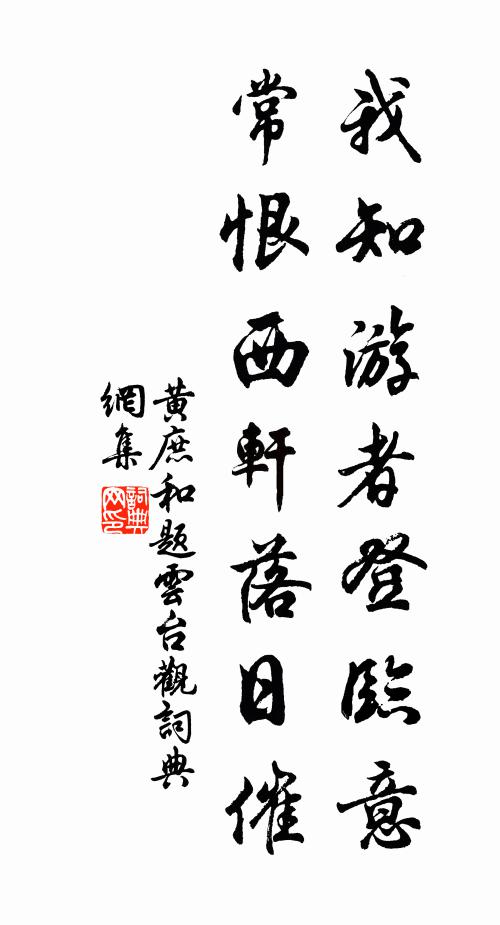 我知游者登臨意
常恨西軒落日催
黄庶和题雲台觀詞典
網集
詞典
网印